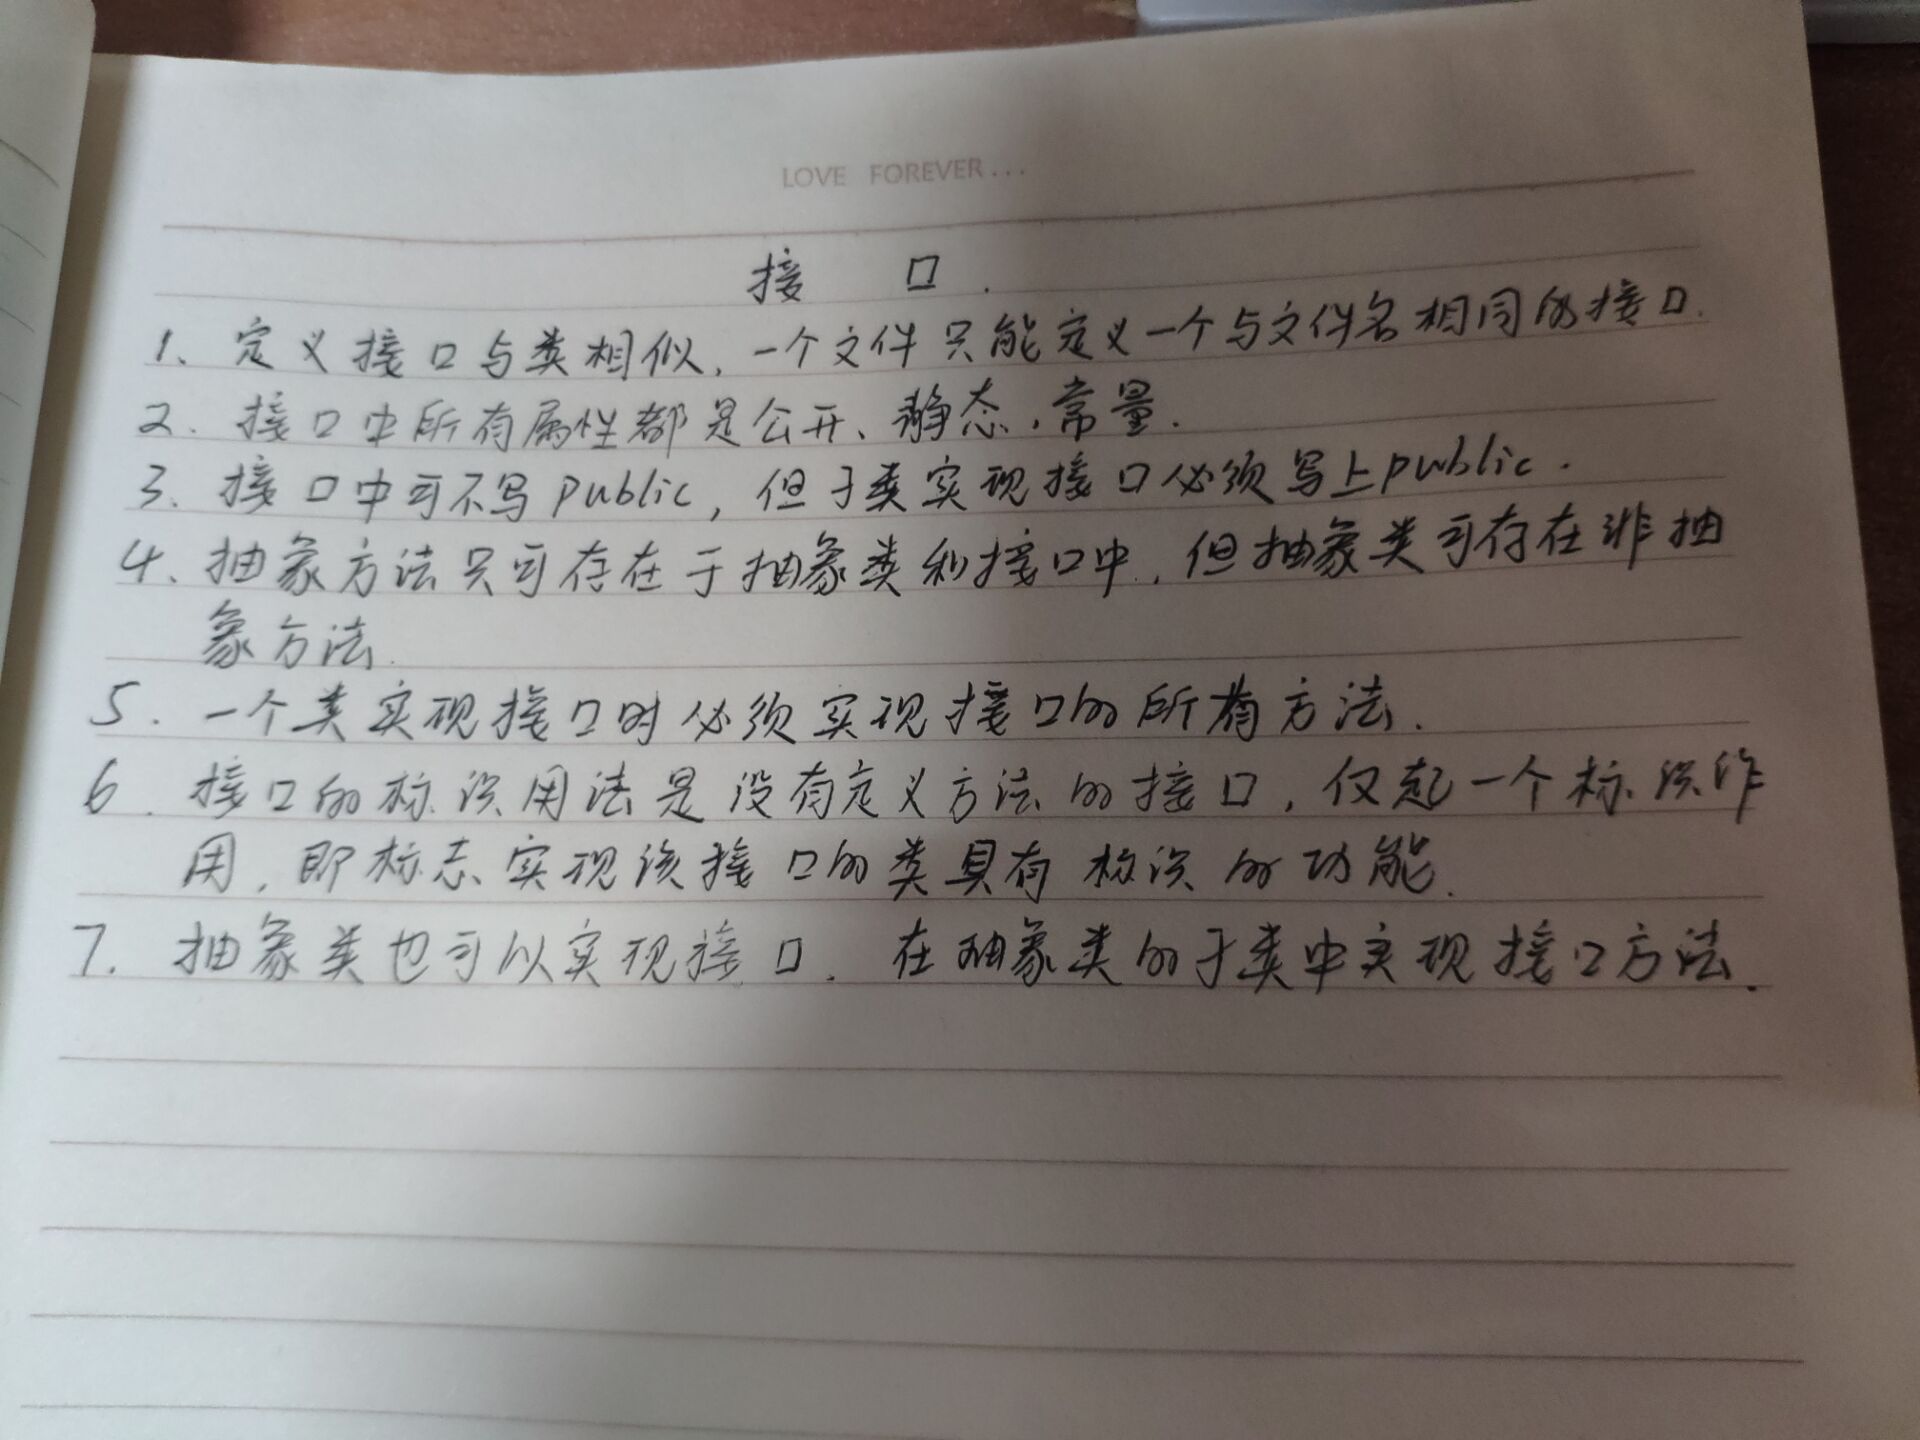 LOVE FOREVER...
接 口.
1、定义接口与类相似，一个文件只能定义一个与文件名相同的接口.
2、接口中所有属性都是公开、静态、常量.
3、接口中可不写public，但子类实现接口必须写上public.
4、抽象方法只可存在于抽象类和接口中，但抽象类可存在非抽
象方法.
5.一个类实现接口时必须实现接口的所有方法.
6.接口的标识用法是没有定义方法的接口，仅起一个标识作
用，即标志实现该接口的类具有标识的功能.
7.抽象类也可以实现接口. 在抽象类的子类中实现接口方法.